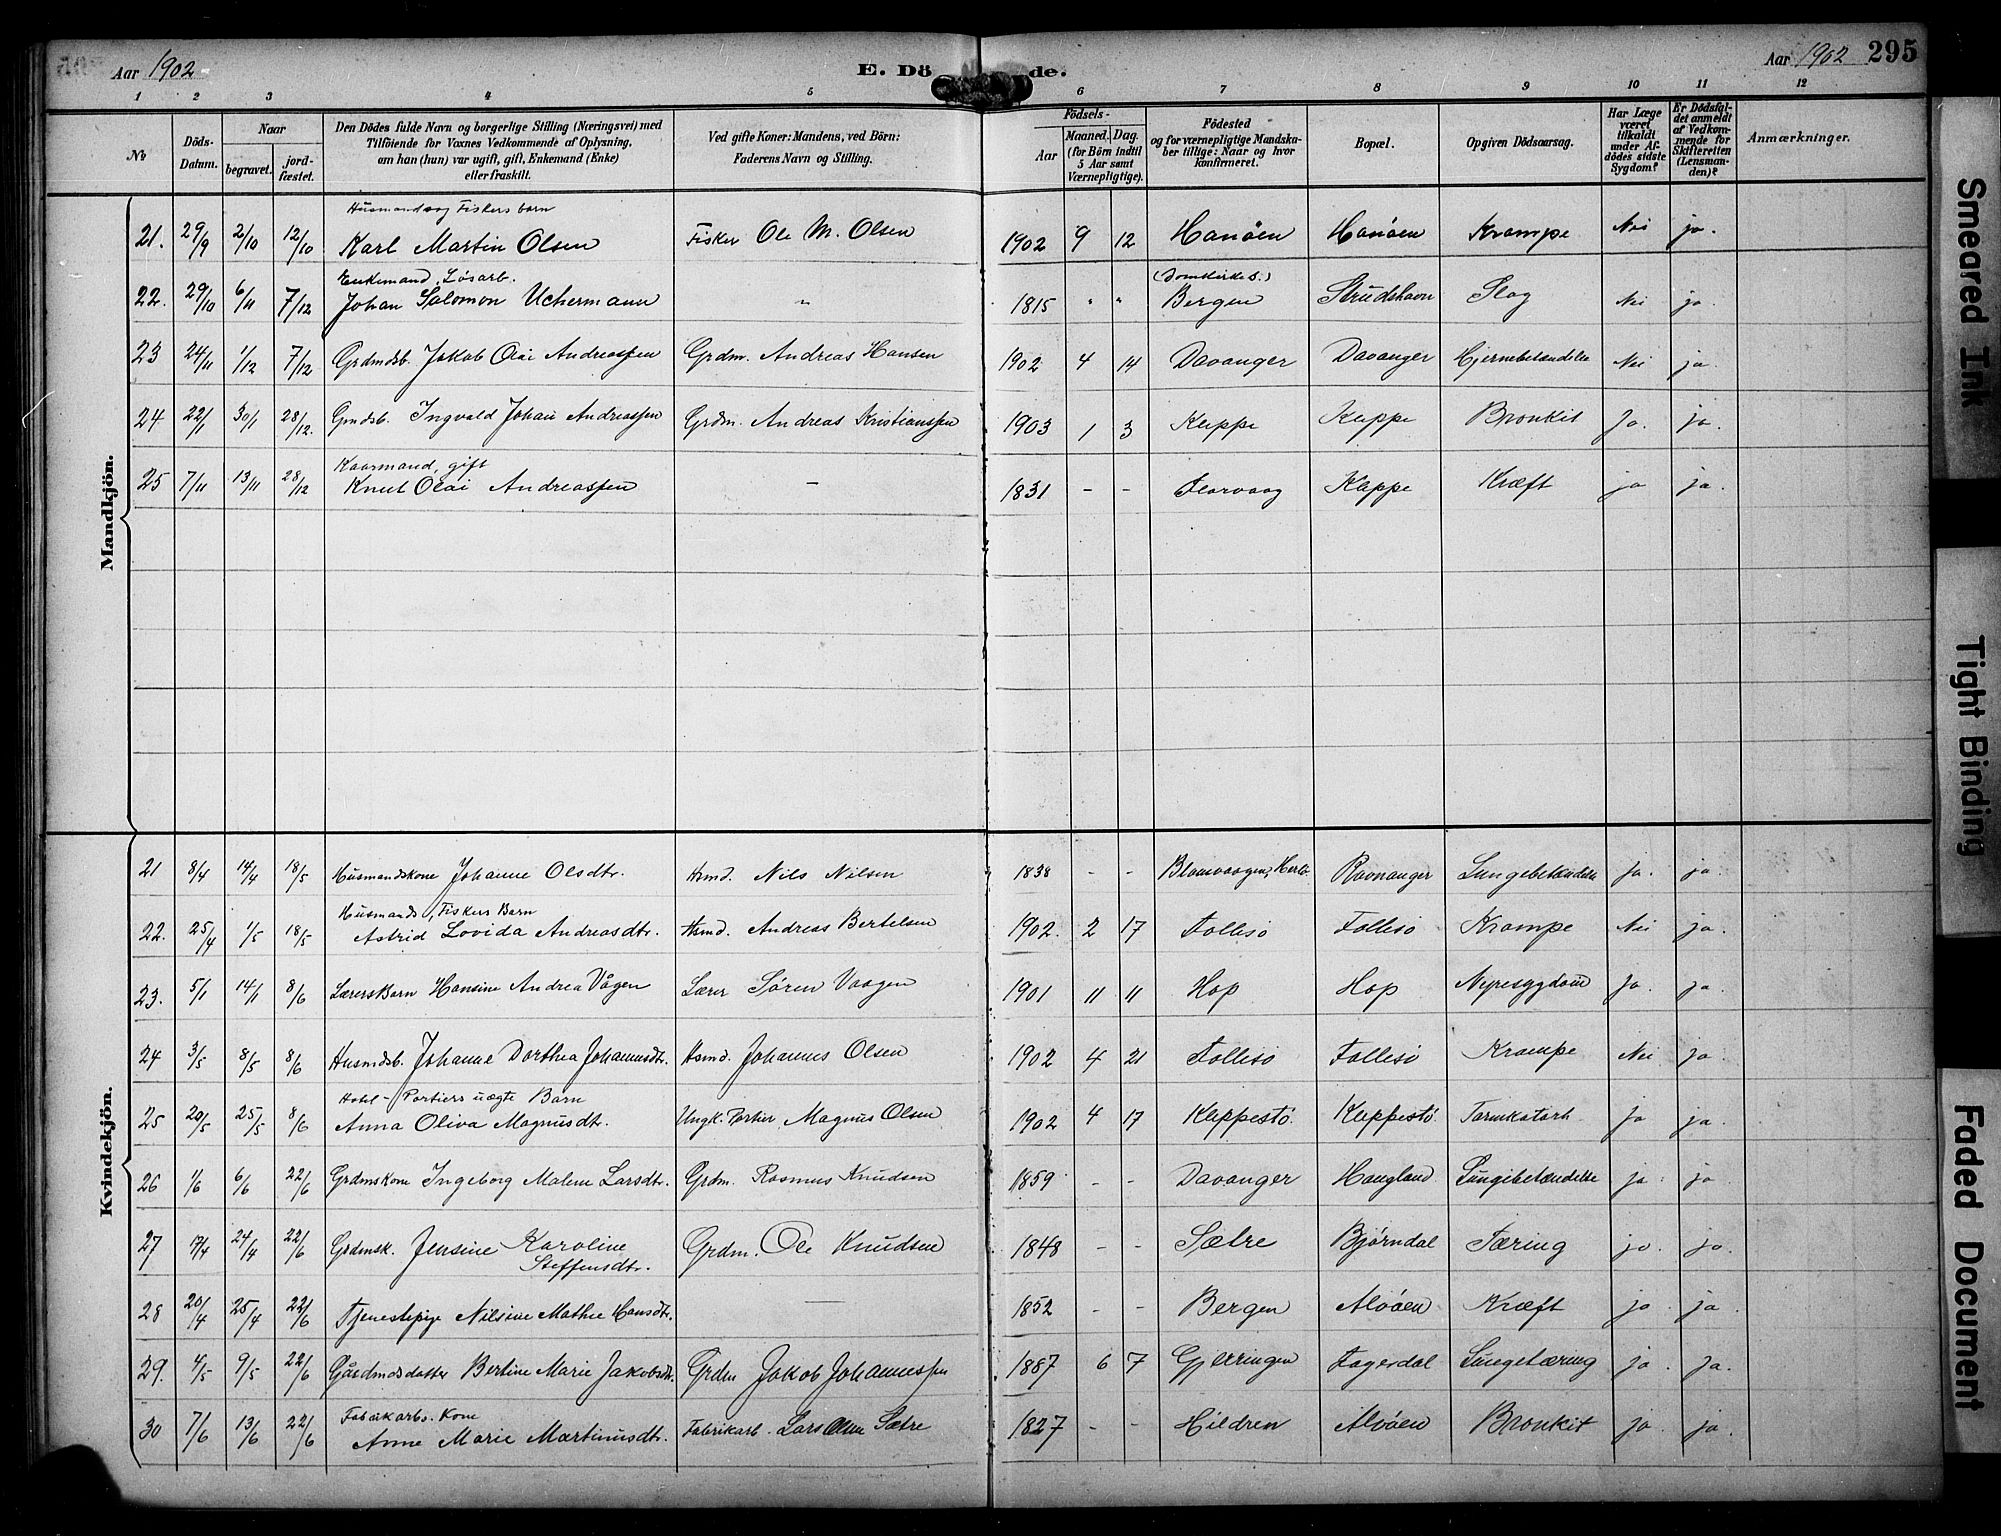 Aar 1902
E. Dö de.
Aar 1902 295
1 2 3 4 5 6 7 8 9 10 11 12
No
Döds-Datum.
Naar
begravet.
jord-fæstet.
Den Dödes fulde Navn og borgerlige Stilling (Næringsvei) med
Tilföiende for Voxnes Vedkommende af Oplysning,
om han (hun) var ugift, gift, Enkemand (Enke)
eller fraskilt.
Ved gifte Koner: Mandens, ved Börn:
Faderens Navn og Stilling.
Födsels-
Aar
Maaned. Dag.
(for Börn indtil
5 Aar samt
Værnepligtige).
Födested
og for værnepligtige Mandska-
ber tillige: Naar og hvor
konfirmeret.
Bopæl.
Opgiven Dödsaarsag.
Har Læge
været
tilkaldt
under Af-
dödes sidste
Sygdom?
Er Dödsfal-
det anmeldt
af Vedkom-
mende for
Skifteretten
(Lensman-
den)?
Anmærkninger.
Mandkjön.
Husmands og Fiskers barn
21. 29/9 2/10 12/10 Karl Martin Olsen Fisker Ole M. Olsen 1902 9 12 Hanöen Hanöen Krampe Nei ja.
Enkemand, Løsarb. (Domkirke S.)
22. 29/10 6/11 7/12 Johan Salomon Uchermann " 1815 " " Bergen Strudshavn Slag Nei ja.
23 24/11 1/12 7/12 Grdmdsb. Jakob Olai Andreassen Grdm. Andreas Hansen 1902 4 14 Davanger Davanger Hjernebetændelse Nei ja.
24 22/1 30/1 28/12. Grmdsb. Ingvald Johan Andreassen Grdm. Andreas Kristianssen 1903 1 3 Kleppe Kleppe Bronkit Ja. ja.
Kaarmand, gift
25 7/11 13/11 28/12 Knut Olai Andreassen - 1831 - - Florvaag Kleppe Kræft ja ja.
Kvindekjön.
21 8/4 14/4 18/5 Husmandskone Johanne Olsdtr. Hsmd. Nils Nilsen 1838 - - Blomvaagen, Herlø Ravnanger Lungebetændelse ja. ja.
Husmands, Fiskers Barn
22. 25/4 1/5 18/5 Astrid Lovida Andreasdtr. Hsmd. Andreas Bertelsen 1902. 2 17 Follesö Follesö Krampe Nei ja.
23. 5/1 14/1 8/6 Lærersbarn Hansine Andrea Vågen Lærer Sören Vaagen 1901 11 11 Hop Hop Nyresygdom Ja. ja.
24 3/5 8/5 8/6 Husmdsb. Johanne Dorthea Johannesdtr. Hsmd. Johannes Olsen 1902 4 21 Follesö Follesö Krampe Nei ja.
Hotel-Portiers uægte Barn
25 20/5 25/5 8/6 Anna Oliva Magnusdtr. Ungk. Portier Magnus Olsen 1902 4 17 Kleppestö. Kleppestö. Tarmkatarh ja ja.
26 1/6 6/6 22/6 Grdmskone Ingeborg Malene Larsdtr. Grdm. Rasmus Knudsen 1859 - - Davanger Haugland Lungebetændelse ja. ja.
27 17/4 24/4 22/6 Grdmsk. Jensine Karoline Grdm. Ole Knudsen 1848 - - Sætre Bjørndal Tæring ja. ja.
Steffensdtr.
28 20/4 25/4 22/6 Tjenestepige Nilsine Mathea Hansdtr. — 1852 - - Bergen Alvöen Kræft ja. ja.
29. 4/5 9/5 22/6 Gårdmdsdatter Bertine Marie Jakobsdtr. Grdm Jakob Johannessen 1887 6 7 Gjerringen Fagerdal Lungetæring ja. Ja.
Fabrikarbs. Kone
30 7/6 13/6 22/6 Anne Marie Martinusdtr. Fabrikarb. Lars Olsen Sætre 1827 - - Hildren Alvöen Bronkit ja. ja.
Smeared Ink
Tight Binding
Faded Document